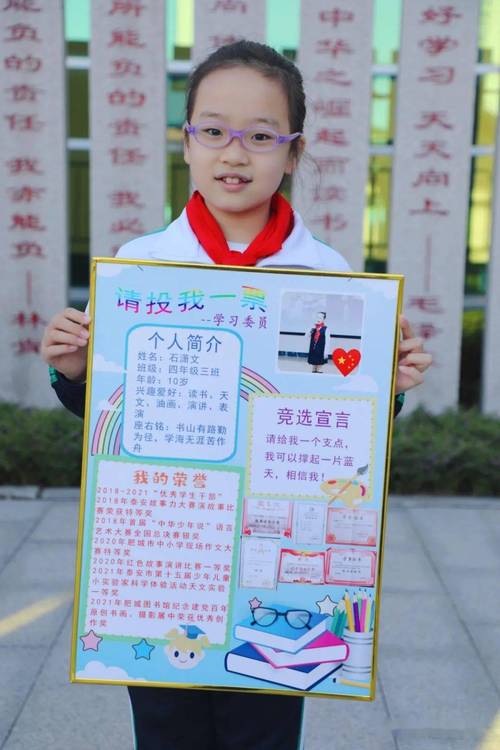 能负的责任 我亦能负——林
所能负的责任 我必
尚
中华之崛起而读书
好学习 天天向上——毛泽
请投我一票
--学习委员
个人简介
姓名：石潇文
班级：四年级三班
年龄：10岁
兴趣爱好：读书，天
文，油画，演讲，表
演
座右铭：书山有路勤
为径，学海无涯苦作
舟
竞选宣言
请给我一个支点，
我可以撑起一片蓝
天，相信我！
我的荣誉
2018-2021“优秀学生干部”
2018年泰安故事力大赛演故事比
赛荣获特等奖
2018年首届“中华少年说”语言
艺术大赛全国总决赛银奖
2020年肥城市中小学现场作文大
赛特等奖
2020年红色故事演讲比赛一等奖
2021年泰安市第十五届少年儿童
小实验家科学体验活动天文实验
一等奖
2021年肥城图书馆纪念建党百年
原创书画、摄影展中荣获优秀创
作奖